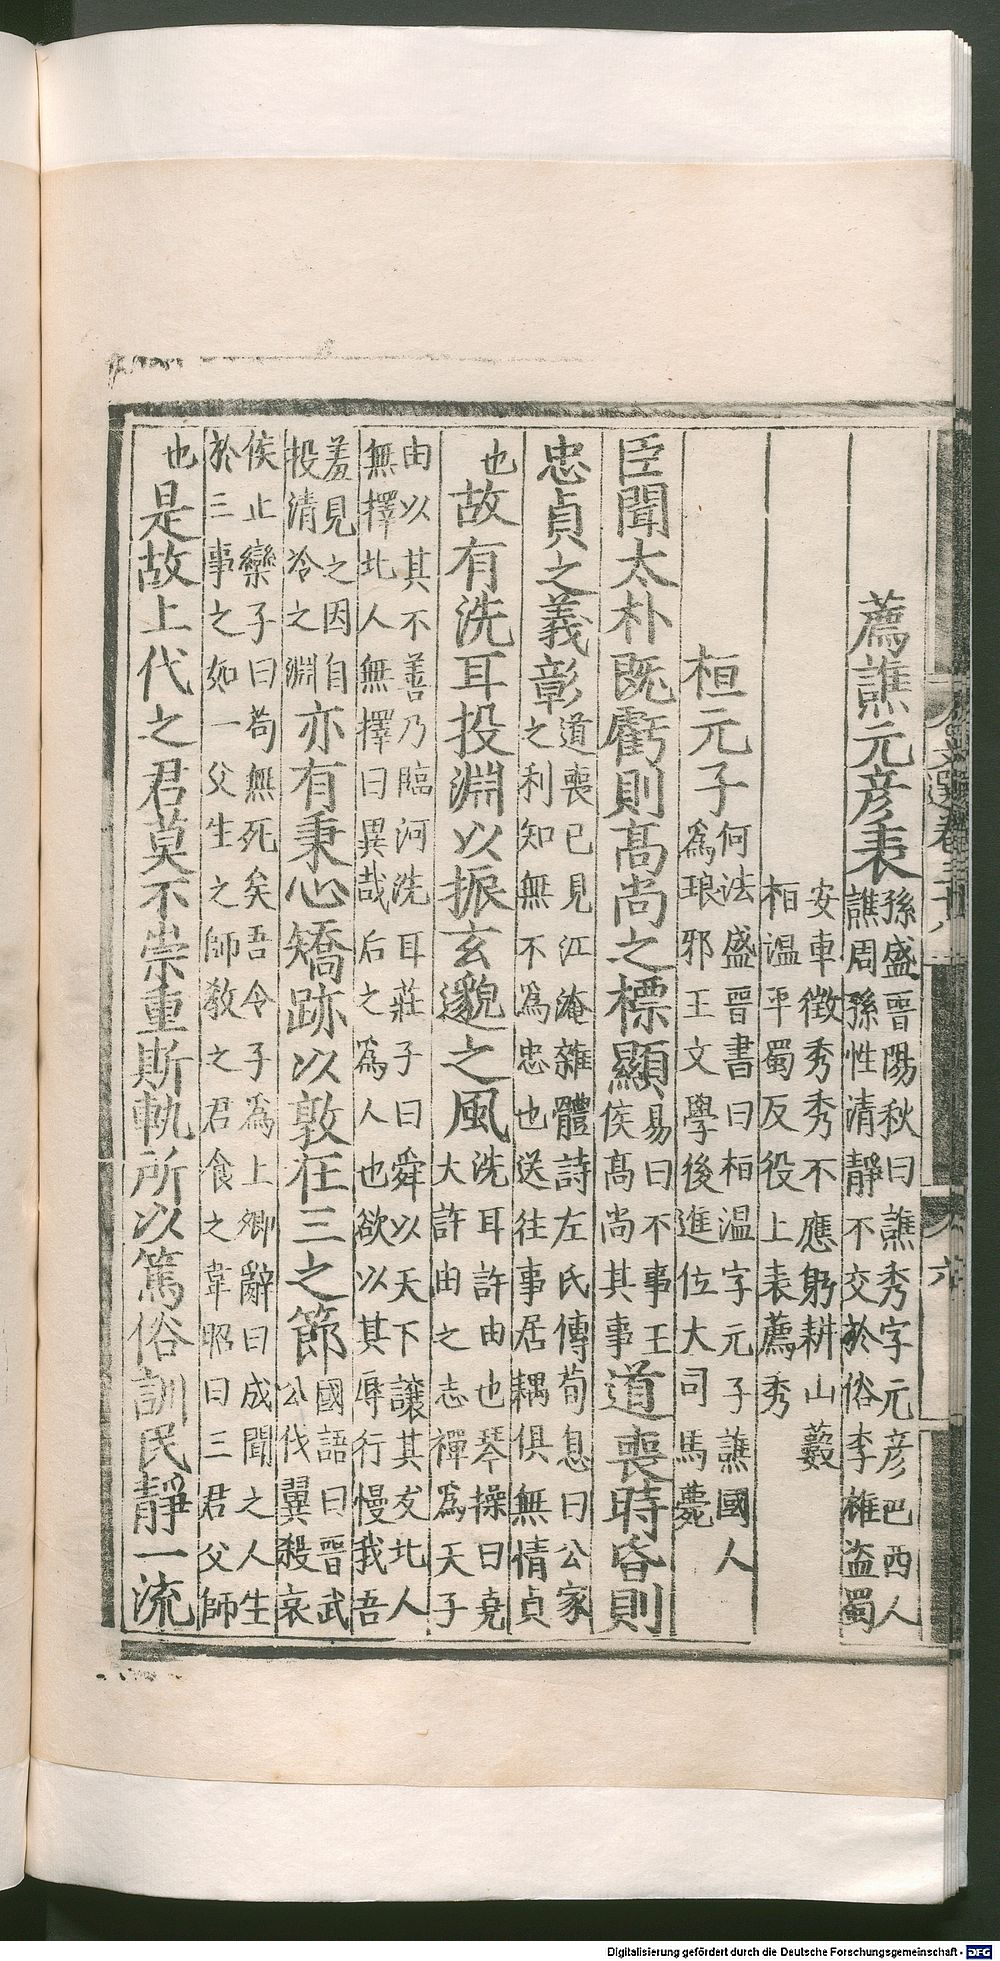 薦譙元彦表孫盛晋陽秋曰譙秀字元彦巴西人
譙周孫性清静不交於俗李雄盗蜀
安車徵秀秀不應躬耕山藪
桓温平蜀反役上表薦秀
桓元子何法盛晋書曰桓温字元子譙國人
爲琅邪王文學後進位大司馬薨
臣聞太朴既虧則髙尚之標顯易曰不事王
侯髙尚其事道喪時昏則
忠貞之義彰道喪已見江淹雜體詩左氏傳荀息曰公家
之利知無不爲忠也送往事居耦俱無情貞
也故有洗耳投淵以振玄邈之風洗耳許由也琴操曰堯
大許由之志禪爲天子
由以其不善乃臨河洗耳莊子曰舜以天下讓其友北人
無擇北人無擇曰異哉后之爲人也欲以其辱行慢我吾
羞見之因自
投清泠之淵亦有秉心矯跡以敦在三之節國語曰晋武
公伐翼殺哀
侯止欒子曰苟無死矣吾令子爲上卿辭曰成聞之人生
於三事之如一父生之師教之君食之韋昭曰三君父師
也是故上代之君莫不崇重斯軌所以篤俗訓民静一流
文選卷三十八
六
Digitalisierung gefördert durch die Deutsche Forschungsgemeinschaft - DFG